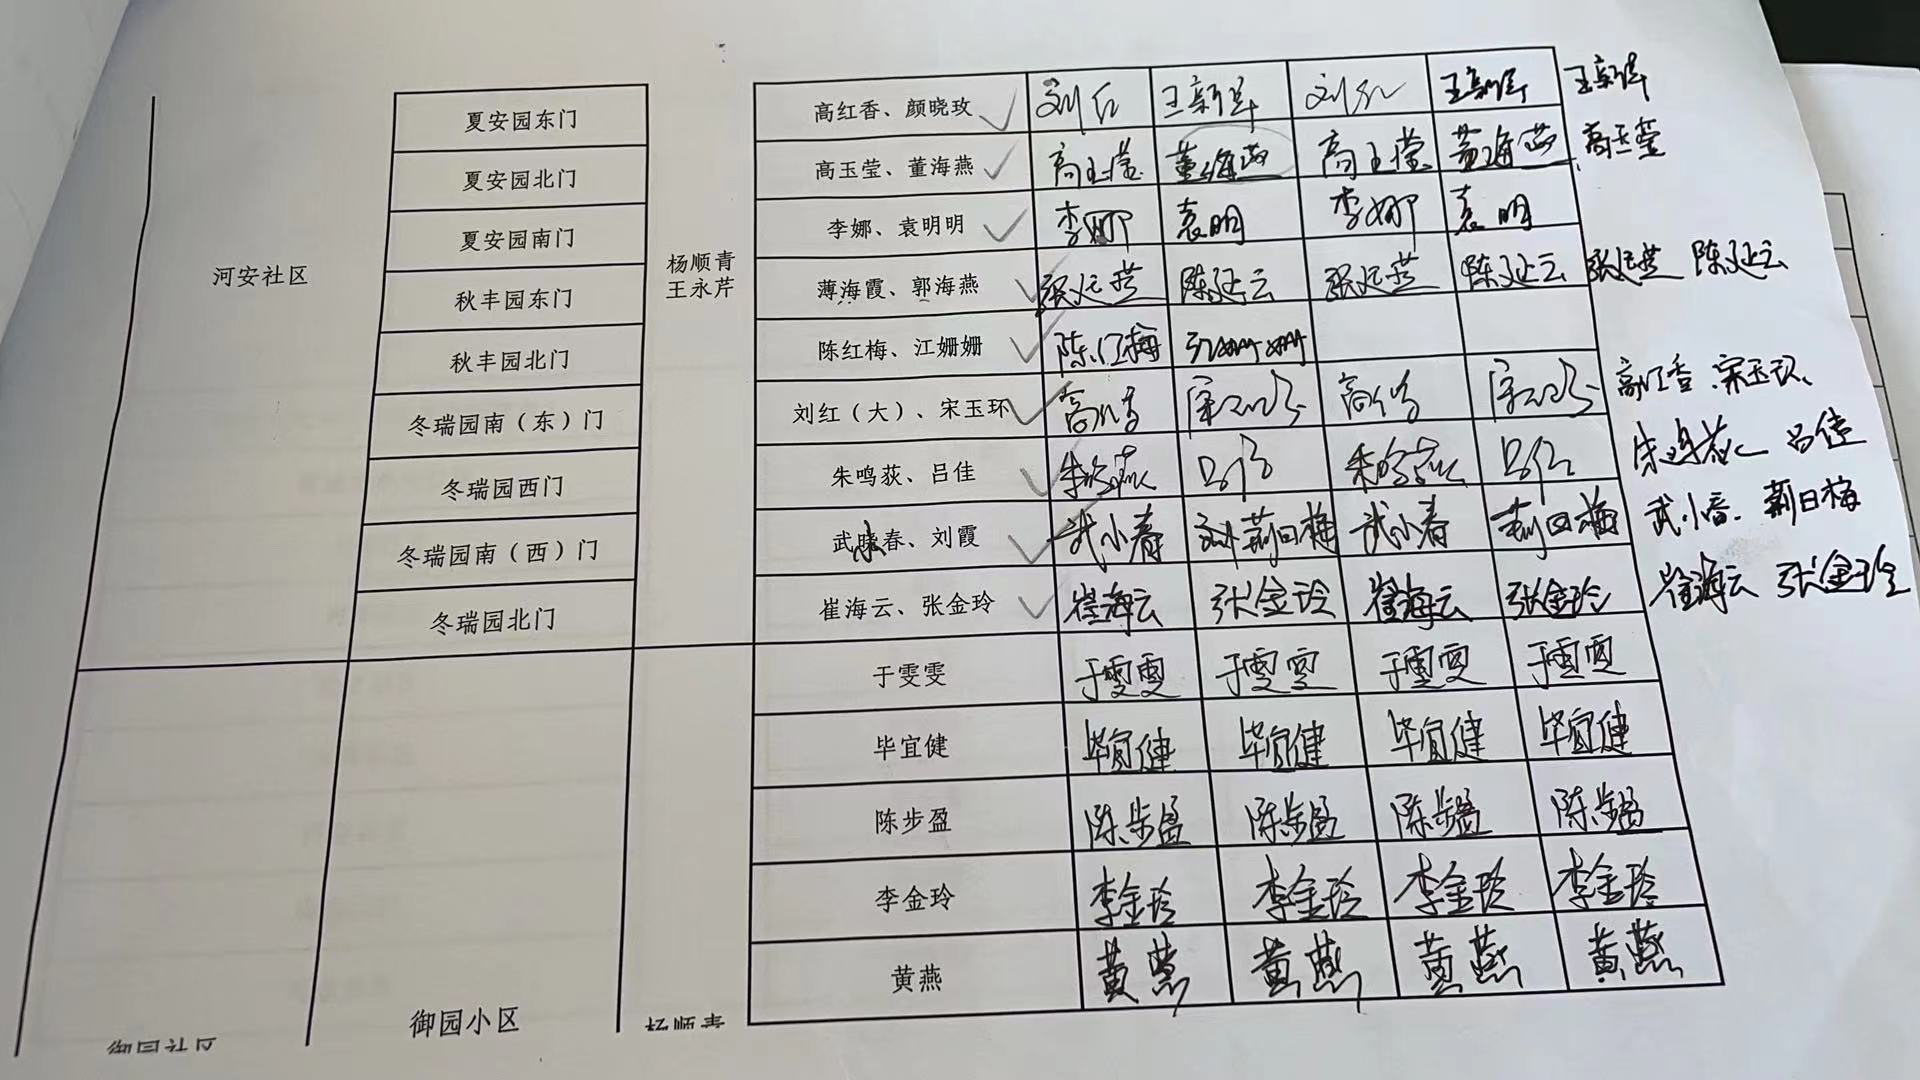 夏安园东门 高红香、颜晓玫 刘红 王新华 刘红 王新华 王新华
夏安园北门 高玉莹、董海燕 高玉莹 董海燕 高玉莹 董海燕 高玉莹
夏安园南门 李娜、袁明明 李娜 袁明 李娜 袁明
河安社区 秋丰园东门 杨顺青 王永芹 薄海霞、郭海燕 张运燕 陈延云 张运燕 陈延云 张运燕 陈延云
秋丰园北门 陈红梅、江姗姗 陈红梅 江姗姗
冬瑞园南（东）门 刘红（大）、宋玉环 高红香 宋玉环
冬瑞园西门 朱鸣荻、吕佳 朱鸣荻 吕佳 朱鸣荻 吕佳 吕佳
冬瑞园南（西）门 武晓春、刘霞 小 武小春 荆日梅 武小春 荆日梅 武小春、荆日梅
冬瑞园北门 崔海云、张金玲 崔海云 张金玲 崔海云 张金玲 崔海云 张金玲
于雯雯 于雯雯 于雯雯 于雯雯 于雯雯
毕宜健 毕宜健 毕宜健 毕宜健 毕宜健
陈步盈 陈步盈 陈步盈 陈步盈 陈步盈
李金玲 李金玲 李金玲 李金玲 李金玲
黄燕 黄燕 黄燕 黄燕 黄燕
御园社区 御园小区 杨顺青